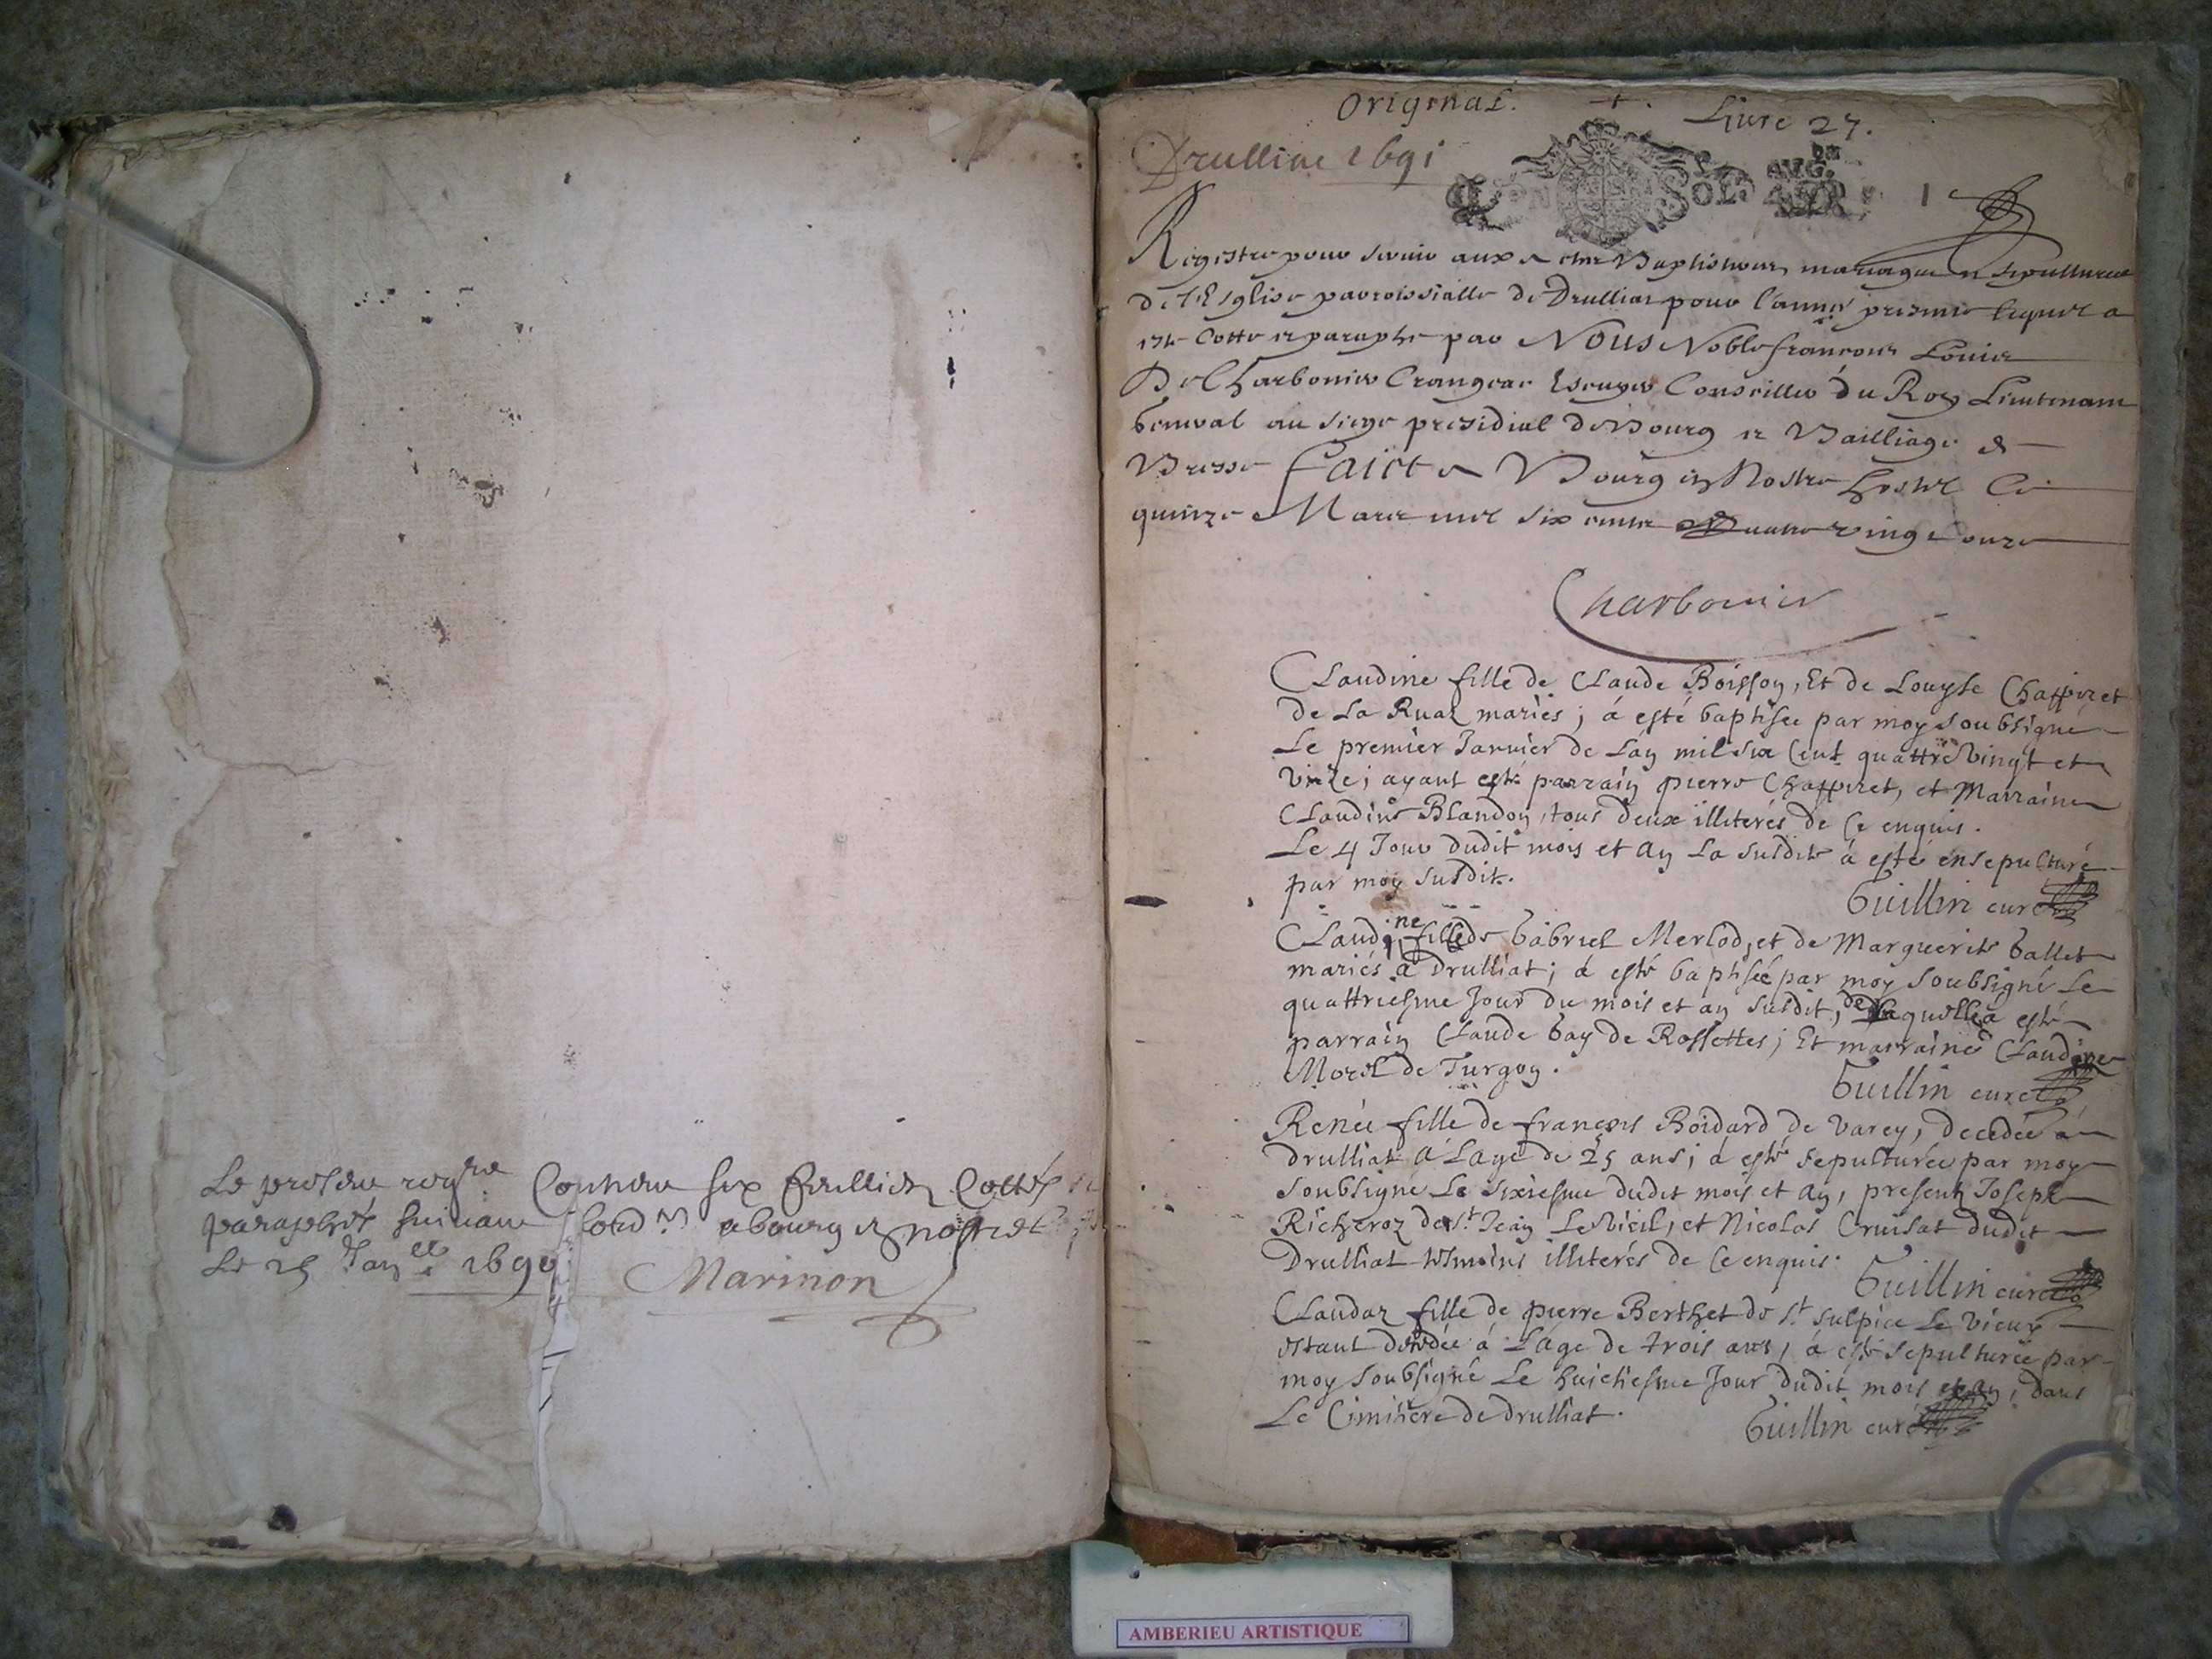 Le present reg.re Contenu six feullietz Cottés
paraphés suivant l'ord.ce a bourg en nostre
Le 25 Jan 1690
Marinon
Original.
Livre 27.
Drullia 1691
SOL AUG.
1
Registre pour servir aux actes Baptistaires mariages et sepultures
de l'Esglise parroissialle de Drulliat pour l'année presente lequel a
esté Cotté et paraphé par NOUS Noble françois Louis
De Charbonier Crangeac Escuyer Conseiller du Roy Lieutenant
General au siege presidial de Bourg et Bailliage de
Bresse faict a Bourg en Nostre hostel Ce
quinze Mars mil six cents Quatre vingt onze
Charbonier
Claudine fille de Claude Boisson, Et de Louyse Chappizet
de La Ruaz mariés; á esté baptisée par moy soubsigné
Le premier Janvier de L'an mil six Cent quattre vingt et
unze; ayant esté parrain pierre Chappizet, et Marraine
Claudine Blandon, tous deux illiterés de Ce enquis.
Le 4 Jour dudit mois et an La susdite á esté ensepulturé
par moy susdit.
Guillin curé
Claudine fille de Gabriel Merlod, et de Marguerite Gallet
mariés á Drulliat; á esté baptisée par moy soubsigné Le
quattriesme Jour du mois et an susdit, de Laquelle á esté
parrain Claude Gay de Rossettes; Et marraine Claudine
Morel de Turgon.
Guillin curé
Renée fille de françois Boidard de Varey, decedée á
Drulliat á L'age de 25 ans; á esté sepulturée par moy
soubsigné Le sixiesme dudit mois et an, presentz Joseph
Richeroz de St Jean Le Vieil, et Nicolas Cruisat dudit
Drulliat tesmoins illiterés de Ce enquis.
Guillin curé
Claudaz fille de pierre Berthet de St sulpice Le Vieux
estant decedée á L'age de trois ans, á esté sepulturée par
moy soubsigné Le huictiesme Jour dudit mois et an, dans
Le Cimitiere de Drulliat.
Guillin curé
AMBERIEU ARTISTIQUE